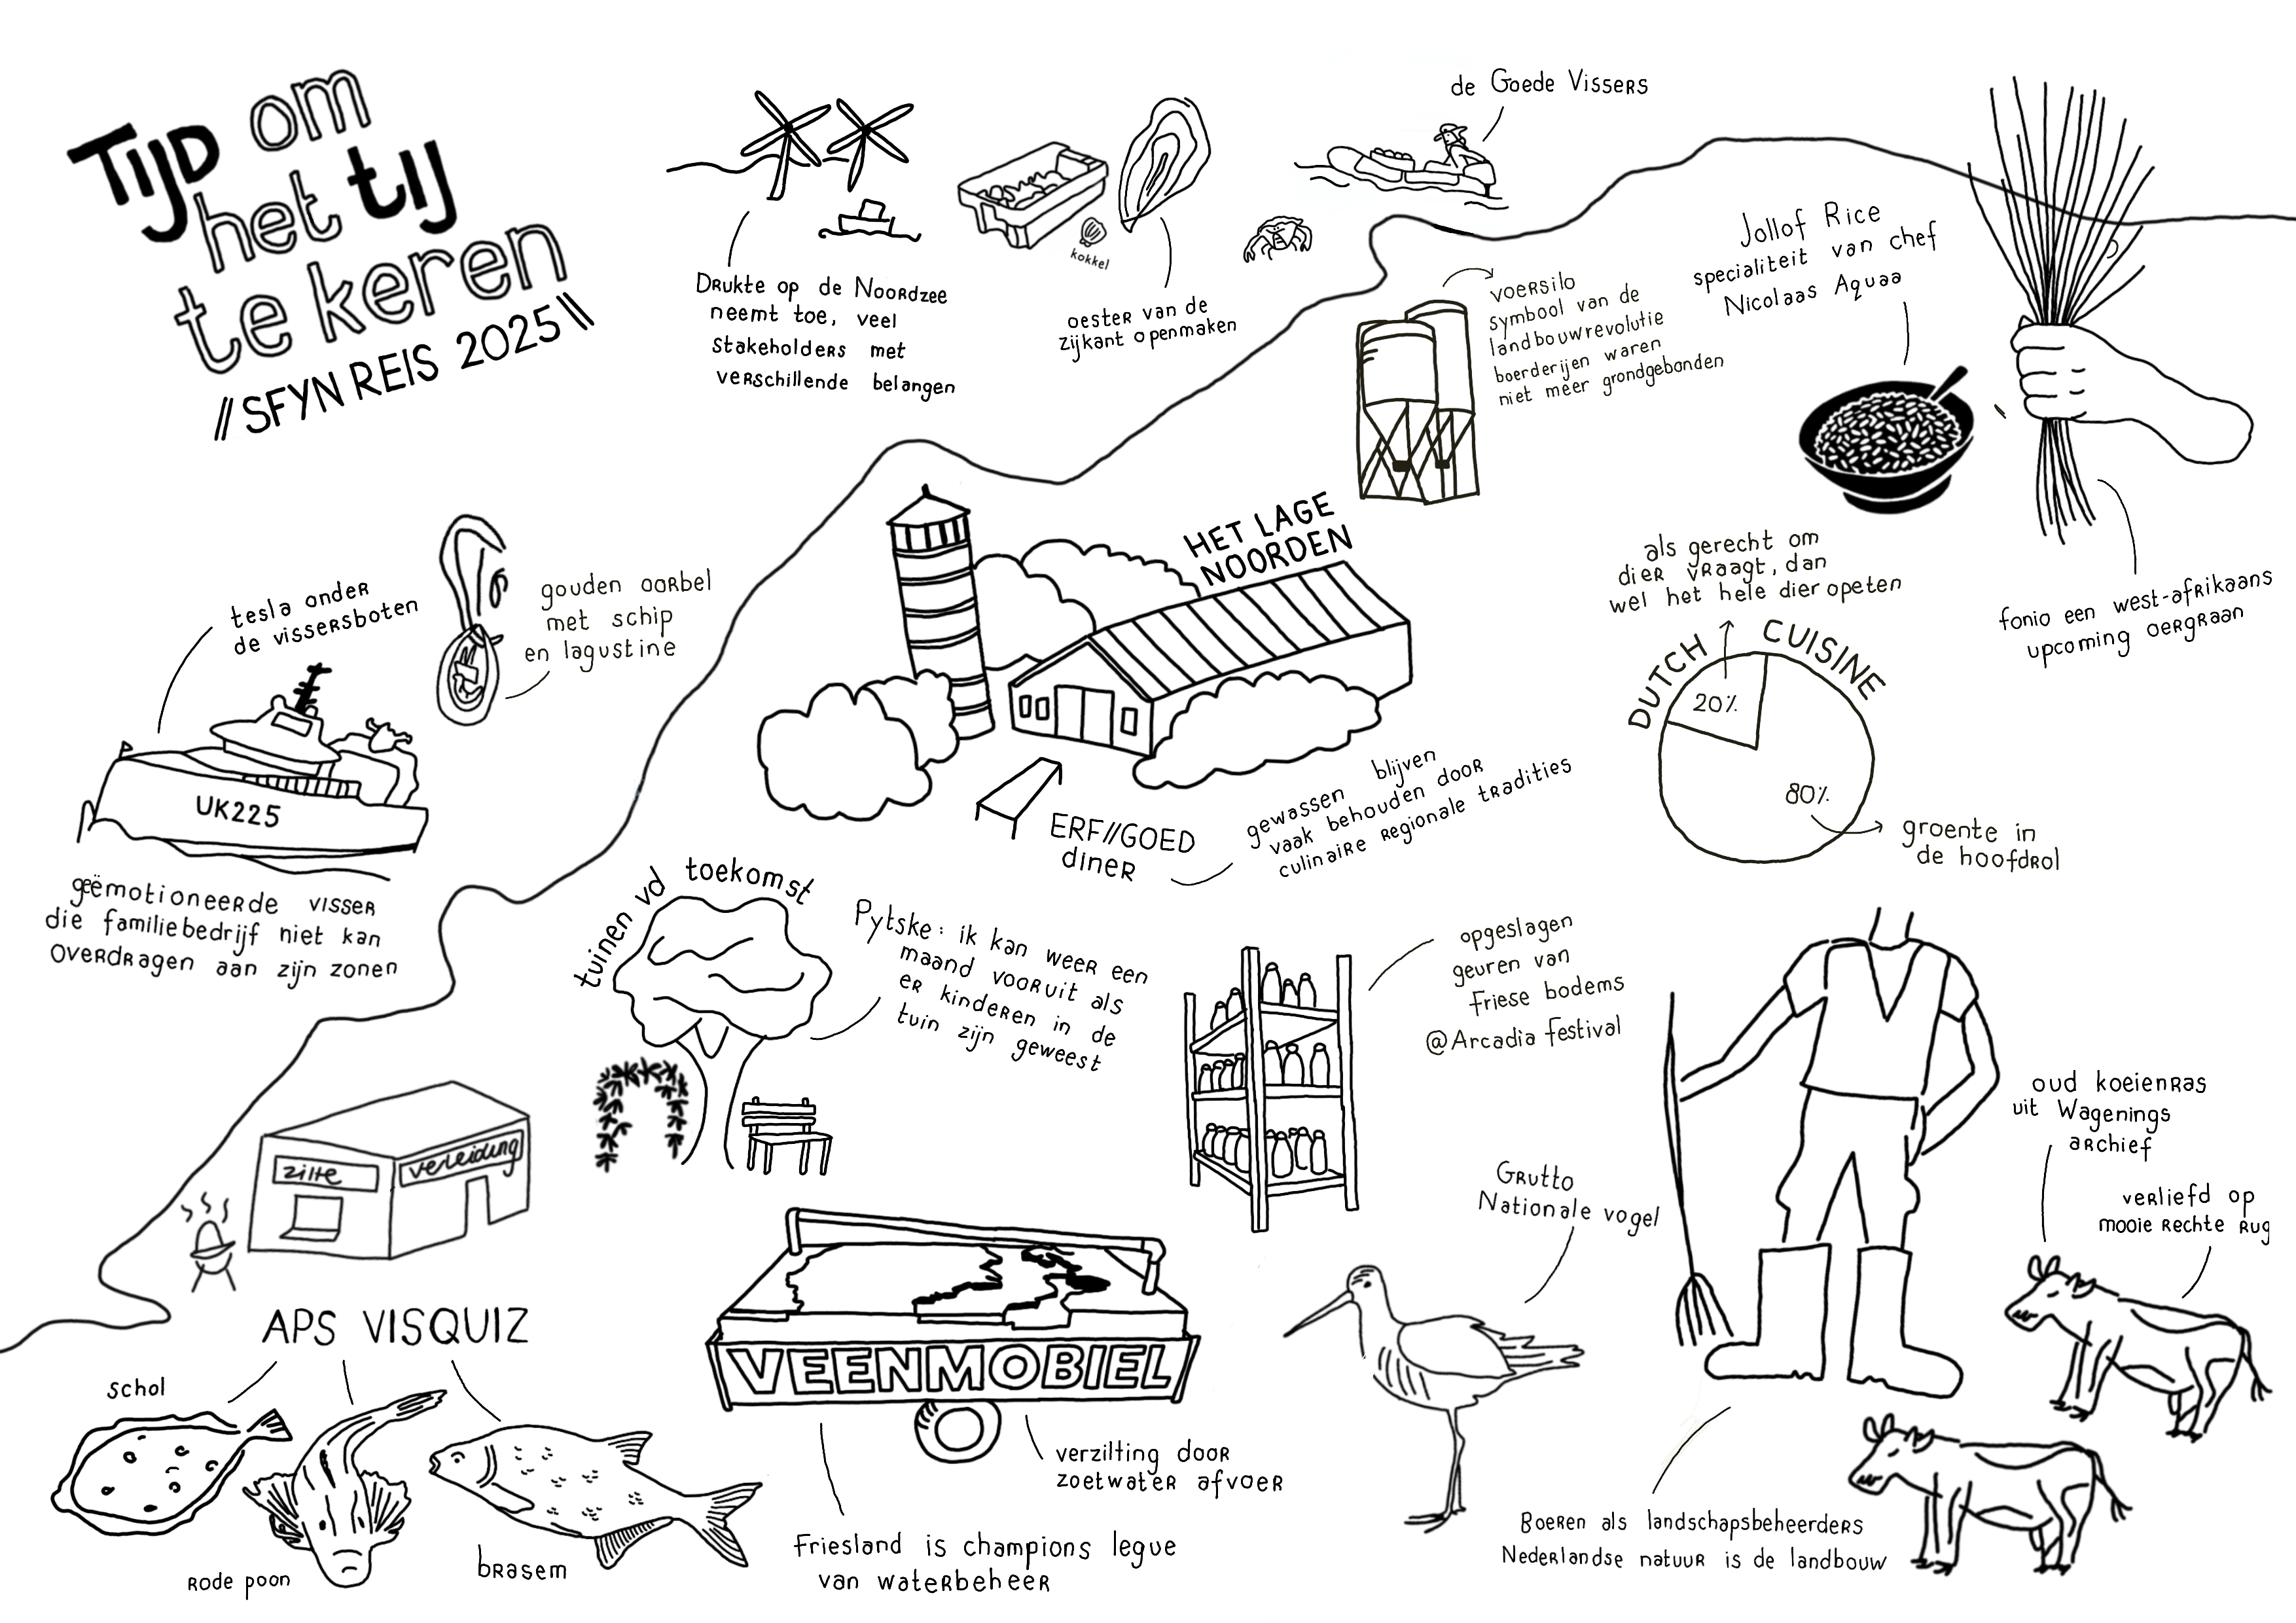 Tijd om
het tij
te keren
// SFYN REIS 2025 \\
Drukte op de Noordzee
neemt toe, veel
stakeholders met
verschillende belangen
kokkel
oester van de
zijkant openmaken
de Goede Vissers
voersilo
symbool van de
landbouwrevolutie
boerderijen waren
niet meer grondgebonden
Jollof Rice
specialiteit van chef
Nicolaas Aquaa
fonio een west-afrikaans
upcoming oergraan
tesla onder
de vissersboten
gouden oorbel
met schip
en lagustine
UK225
geëmotioneerde visser
die familiebedrijf niet kan
overdragen aan zijn zonen
HET LAGE
NOORDEN
ERF//GOED
diner
gewassen blijven
vaak behouden door
culinaire regionale tradities
als gerecht om
dier vraagt, dan
wel het hele dier opeten
DUTCH CUISINE
20%
80%
groente in
de hoofdrol
tuinen vd toekomst
Pytske: ik kan weer een
maand vooruit als
er kinderen in de
tuin zijn geweest
opgeslagen
geuren van
Friese bodems
@Arcadia festival
zilte
verleiding
APS VISQUIZ
schol
rode poon
brasem
VEENMOBIEL
verzilting door
zoetwater afvoer
Friesland is champions legue
van waterbeheer
Grutto
Nationale vogel
oud koeienras
uit Wagenings
archief
verliefd op
mooie rechte rug
Boeren als landschapsbeheerders
Nederlandse natuur is de landbouw